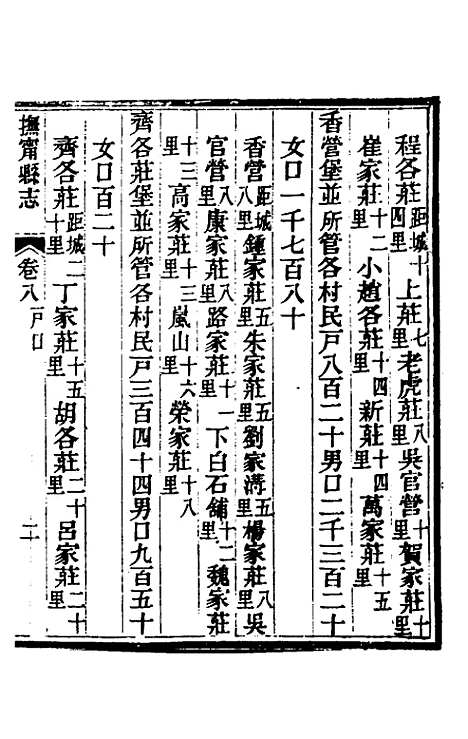 程各莊距城十四里上莊七里老虎莊八里吳官營十里賀家莊十里
崔家莊十二里小趙各莊十四里新莊十四里萬家莊十五里
香營堡並所管各村民戸八百二十男口二千三百二十
女口一千七百八十
香營距城八里鍾家莊五里朱家莊五里劉家溝五里楊家莊八里吳
官營八里康家莊八里路家莊十一里下白石舖十二里魏家莊
十三里高家莊十三里嵐山十六里榮家莊十八里
齊各莊堡並所管各村民戸三百四十四男口九百五十
女口百二十
齊各莊距城二十里丁家莊十五里胡各莊二十里呂家莊二十里
撫甯縣志 卷八 戸口 二